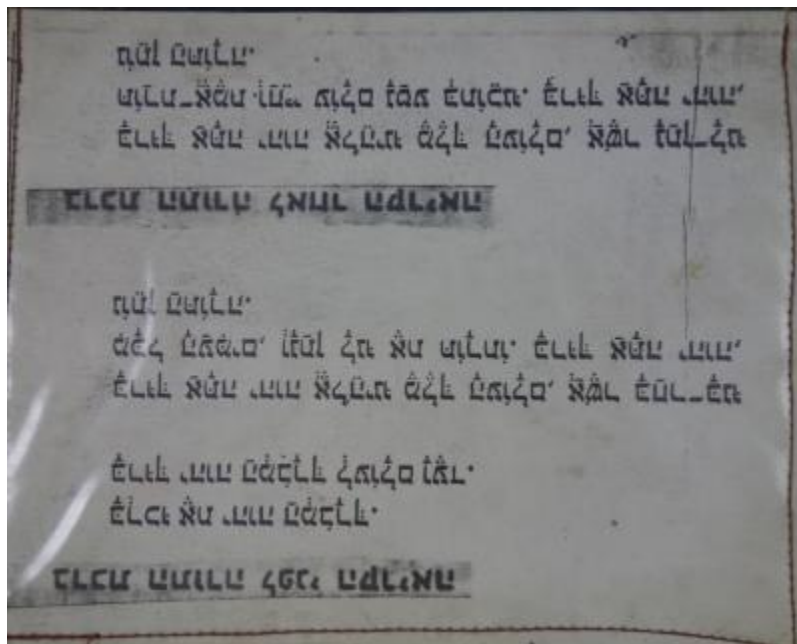 ברכת התורה לפני הקריאה
בָּרְכוּ אֶת יהוה הַמְבֹרָךְ.
בָּרוּךְ יהוה הַמְבֹרָךְ לְעוֹלָם וָעֶד.
בָּרוּךְ אַתָּה יהוה אֱלֹהֵינוּ מֶלֶךְ הָעוֹלָם, אֲשֶׁר בָּחַר־בָּנוּ
מִכָּל הָעַמִּים, וְנָתַן לָנוּ אֶת תּוֹרָתוֹ. בָּרוּךְ אַתָּה יהוה,
נוֹתֵן הַתּוֹרָה.
ברכת התורה לאחר הקריאה
בָּרוּךְ אַתָּה יהוה אֱלֹהֵינוּ מֶלֶךְ הָעוֹלָם, אֲשֶׁר נָתַן־לָנוּ
תּוֹרַת־אֱמֶת וְחַיֵּי עוֹלָם נָטַע בְּתוֹכֵנוּ. בָּרוּךְ אַתָּה יהוה,
נוֹתֵן הַתּוֹרָה.